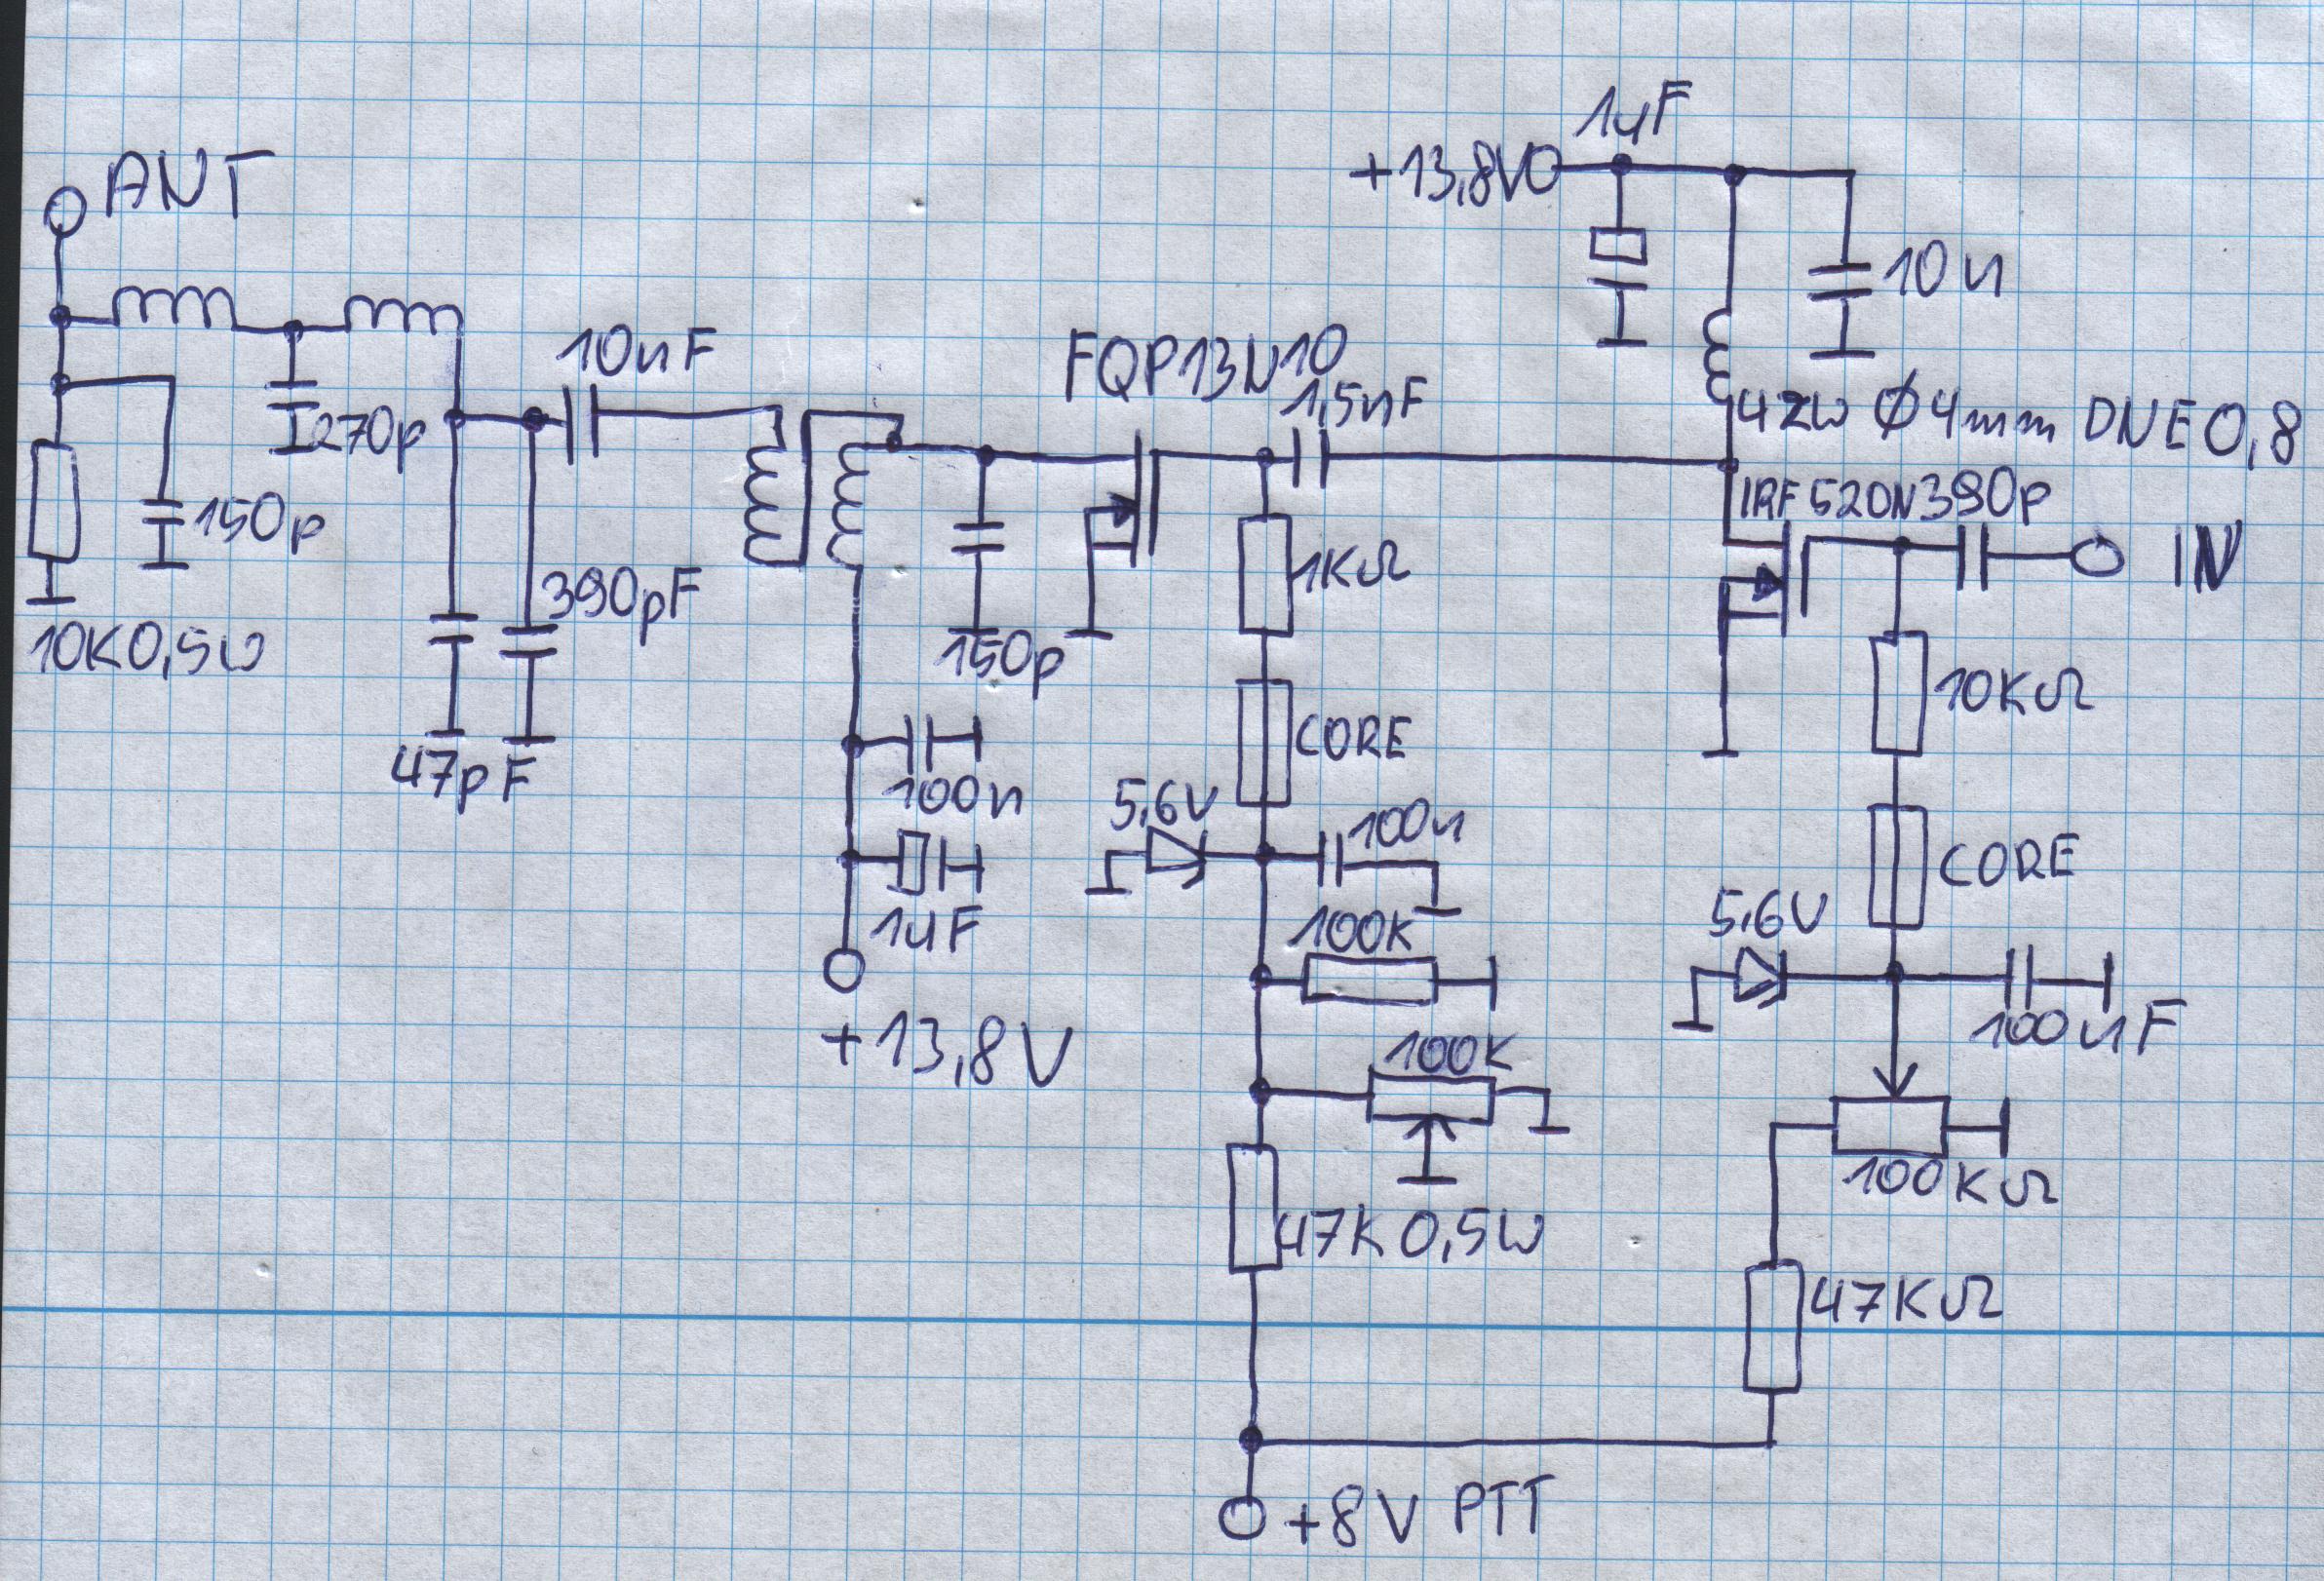 ANT
1uF
+13,8V
10n
10nF
FQP13N10
1,5nF
42W Ø4mm DNE0,8
270p
IRF520N
390p
IN
150p
1KΩ
390pF
10K0,5W
150p
10KΩ
47pF
CORE
100n
5,6V
100n
CORE
1uF
100K
5,6V
+13,8V
100K
100nF
100KΩ
47K0,5W
47KΩ
+8V PTT